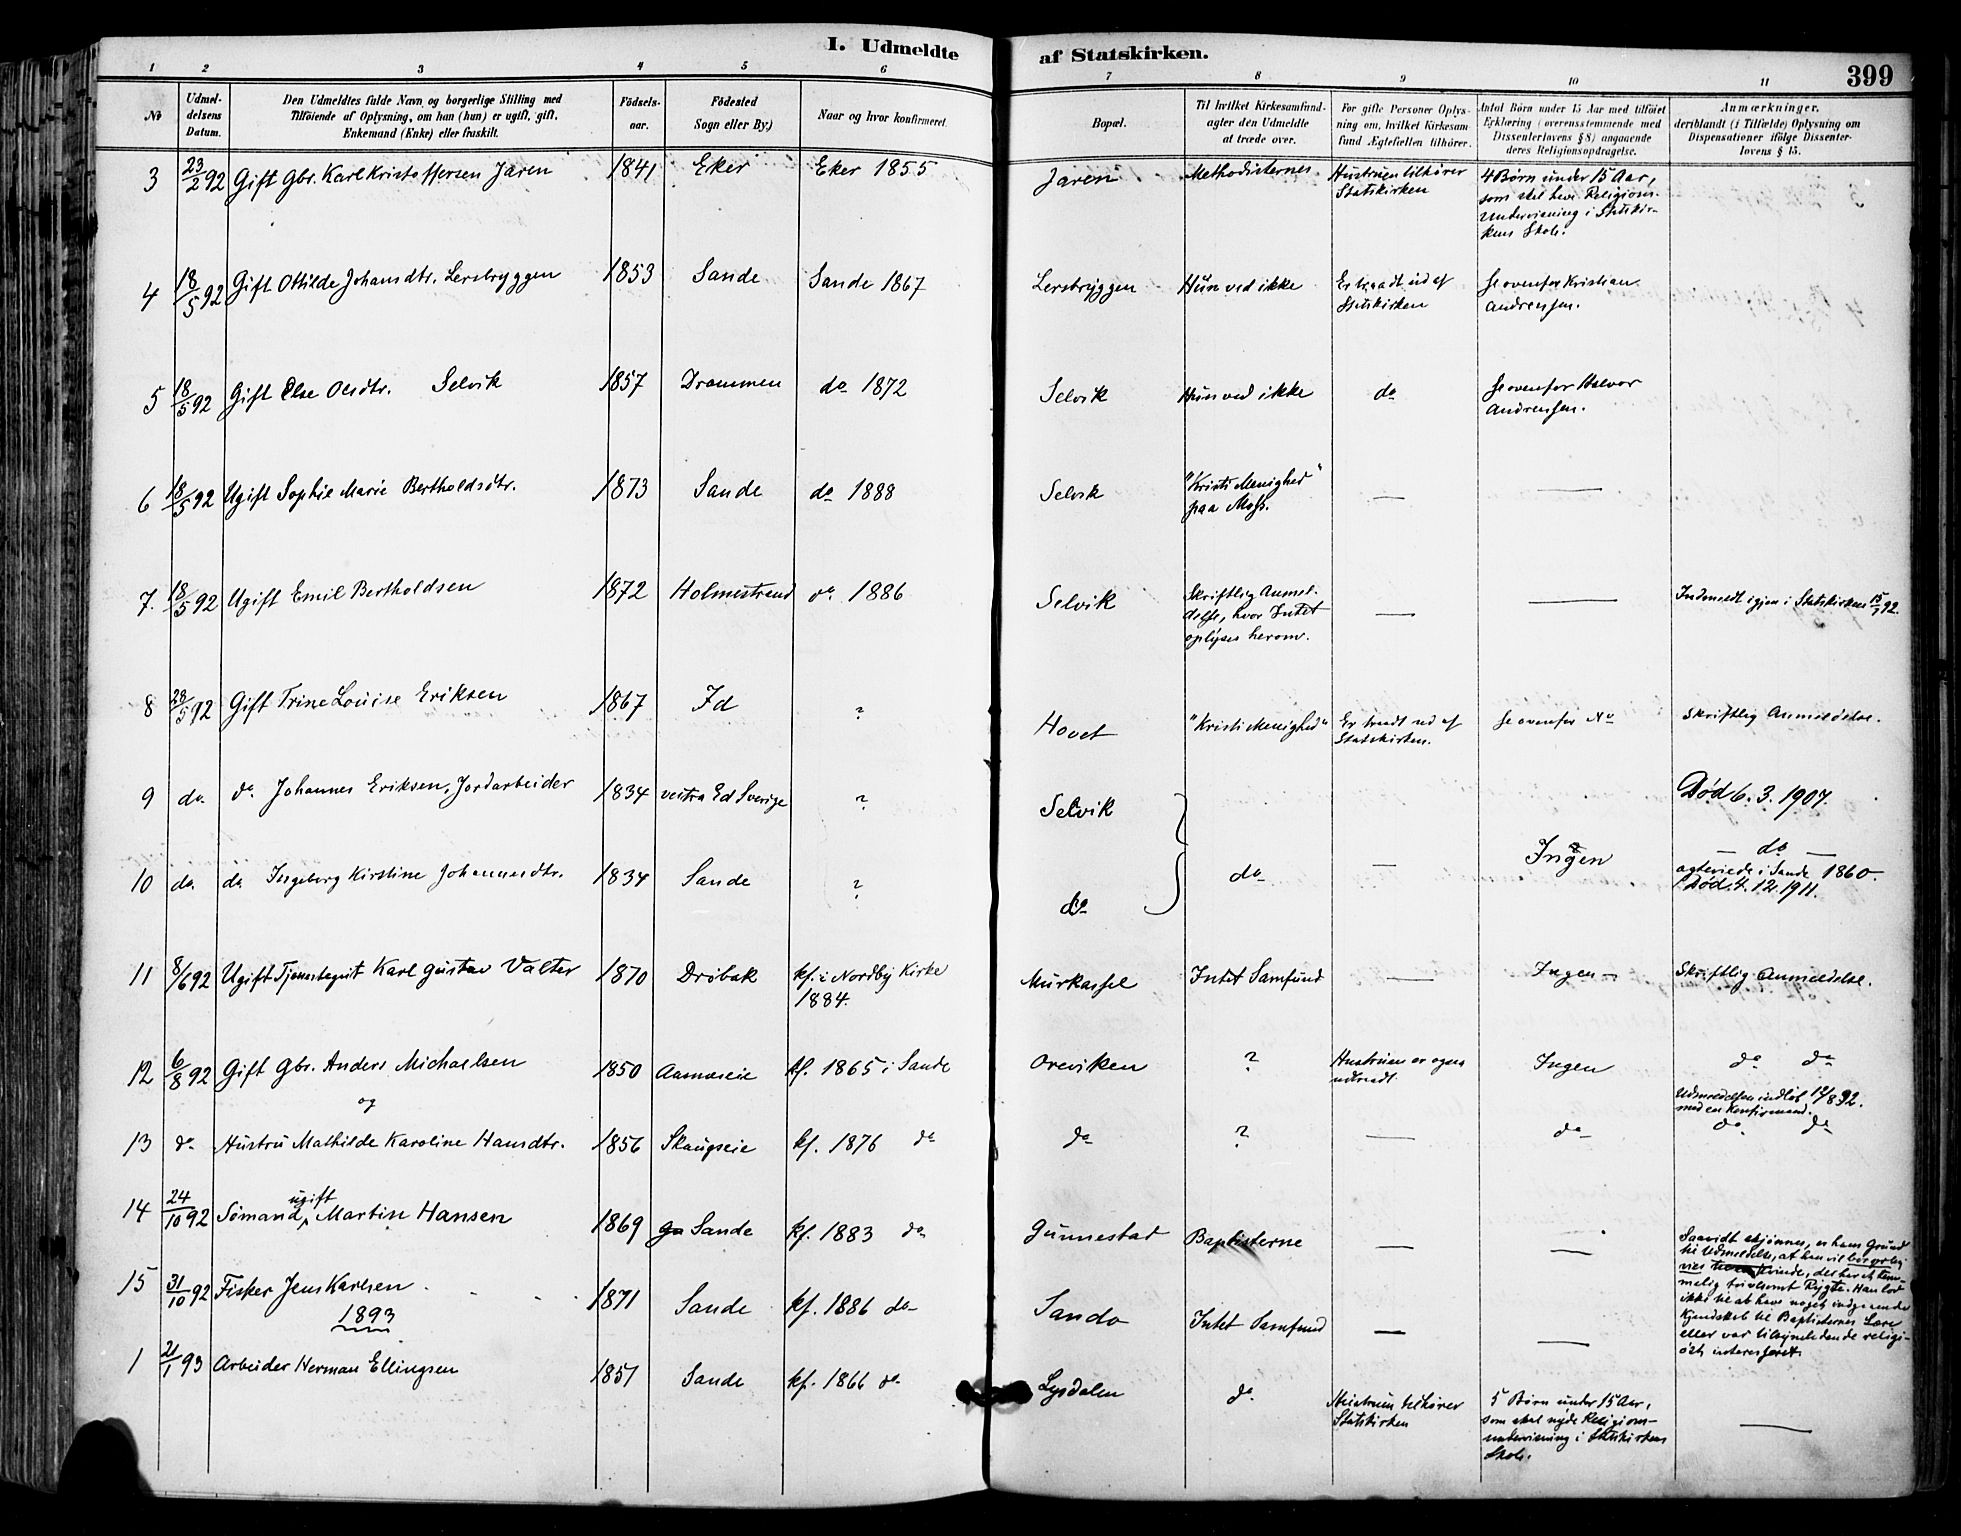 I. Udmeldte af Statskirken.
399
1 2 3 4 5 6 7 8 9 10 11
No
Udmel-
delsens
Datum.
Den Udmeldtes fulde Navn og borgerlige Stilling med
Tilföiende af Oplysning, om han (hun) er ugift, gift,
Enkemand (Enke) eller fraskilt.
Födsels-
aar.
Födested
Sogn eller By.)
Naar og hvor konfirmeret.
Bopæl.
Til hvilket Kirkesamfund-
agter den Udmeldte
at træde over.
For gifte Personer Oplys-
ning om, hvilket Kirkesam
fund Ægtefællen tilhörer.
Antal Börn under 15 Aar med tilföiet
Erklæring (overensstemmende med
Dissenterlovens § 8) angaaende
deres Religionsopdragelse.
Anmærkninger,
deriblandt (i Tilfælde) Oplysning om
Dispensationer ifölge Dissenter-
lovens § 15.
3 23/2 92 Gift Gbr. Karl Kristoffersen Jaren 1841 Eker Eker 1855 Jaren Methodisternes
Hustruen tilhører
Statskirken
4 Børn under 15 Aar,
som skal have Religions-
undervisning i Statskir-
kens Skole.
4 18/5 92 Gift Othilde Johansdtr. Lersbryggen 1853 Sande Sande 1867 Lersbryggen Hun ved ikke
Er traadt ud af
Statskirken
Se ovenfor Kristian
Andreassen.
5 18/5 92 Gift Else Olsdtr. Selvik 1857 Drammen do 1872 Selvik Hun ved ikke do
Se ovenfor Halvor
Andreassen.
6 18/5 92 Ugift Sophie Marie Bertholdsdtr. 1873 Sande do 1888 Selvik
"Kristi Menighed"
paa Moss. — —
7. 18/5 92 Ugift Emil Bertholdsen 1872 Holmestrand do 1886 Selvik
Skriftlig Anmel-
delse, hvor Intet
oplyses herom. — —
Indmeldt igjen i Statskirken 92.
8 28/5 92 Gift Trine Louise Eriksen 1867 Id ? Hovet "Kristi Menighed"
Er traadt ud af
Statskirken.
Se ovenfor No
Skriftlig Anmeldelse.
9 do. do. Johannes Eriksen, Jordarbeider 1834 vestra Ed Sverige ? Selvik
Død 6.3.1907.
10 do. do Ingeborg Kirstine Johannesdtr. 1834 Sande ? do do — Ingen
— do —
agteviede i Sande 1860.
Død 4.12.1911.
11 8/6 92 Ugift Tjenestegut Karl Gustav Valter 1870 Drøbak
kf. i Nordby Kirke
1884.
Murkassel Intet Samfund — Ingen — Skriftlig Anmeldelse.
12 6/8 92 Gift Gbr. Anders Michaelsen 1850 Aamoseie kf. 1865 i Sande Oreviken ?
Hustruen er ogsaa
udtraadt.
Ingen do do
og
Udmeldelsen indløb 12/8 92.
med en Konfirmand.
13 do Hustru Mathilde Karoline Hansdtr. 1856 Skaugseie kf. 1876 do do ? — do do do
14 24/10 92 Sømand, ugift Martin Hansen 1869 Sande kf. 1883 do Gunnestad Baptisterne — —
Saavidt skjønnes, er hans Grund
til Udmeldelse, at han vil borgerlig
vies Kvinde, der har et tem-
melig frivolt Rygte. Han lod
ikke til at have noget indgaaende
Kjendskab til Baptisternes Lære
eller var tilsyneladende religi-
øst interesseret.
15 31/10 92 Fisker Jens Karlsen 1871 Sande kf. 1886 do Sando Intet Samfund — —
1893
1 21/1 93 Arbeider Herman Ellingsen 1851 Sande kf. 1866 do Lysdalen do.
Hustruen tilhører
Statskirken
5 Børn under 15 Aar,
som skal nyde Religions-
undervisning i Statskirkens
Skole. —